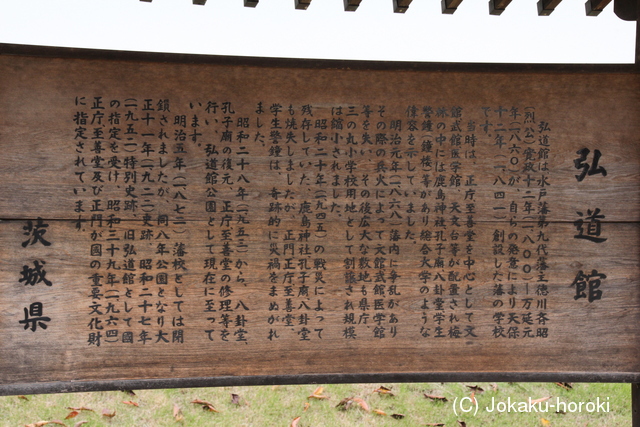 弘道館
弘道館は水戸藩第九代藩主徳川斉昭
(烈公)寛政十二年(一八〇〇)―万延元
年(一八六〇)が、自らの発意により天保
十二年(一八四一)創設した藩の学校
です。
当時は、正庁至善堂を中心として文
館武館医学館、天文台等が配置され梅
林の中には鹿島神社孔子廟八卦堂学生
警鐘(鐘楼)等があり総合大学のような
偉容を示していました。
明治元年(一八六八)藩内に争乱があり
その際の兵火によって文館武館医学館
等を失い、その後広大な敷地も県庁、
三の丸小学校用地として割愛され規模
は縮小されました。
昭和二十年(一九四五)の戦災によって
残存していた、鹿島神社孔子廟八卦堂
も焼失しましたが、正門正庁至善堂、
学生警鐘は、奇跡的に災禍をまぬがれ
ました。
昭和二十八年(一九五三)から、八卦堂、
孔子廟の復元、正庁至善堂の修理等を
行い、弘道館公園として現在に至って
います。
明治五年(一八七二)藩校としては閉
鎖されましたが、同八年公園となり大
正十一年(一九二二)史跡、昭和二十七年
(一九五二)特別史跡、旧弘道館として国
の指定を受け、昭和三十九年(一九六四)
正庁至善堂及び正門が国の重要文化財
に指定されています。
茨城県
(C)Jokaku-horoki